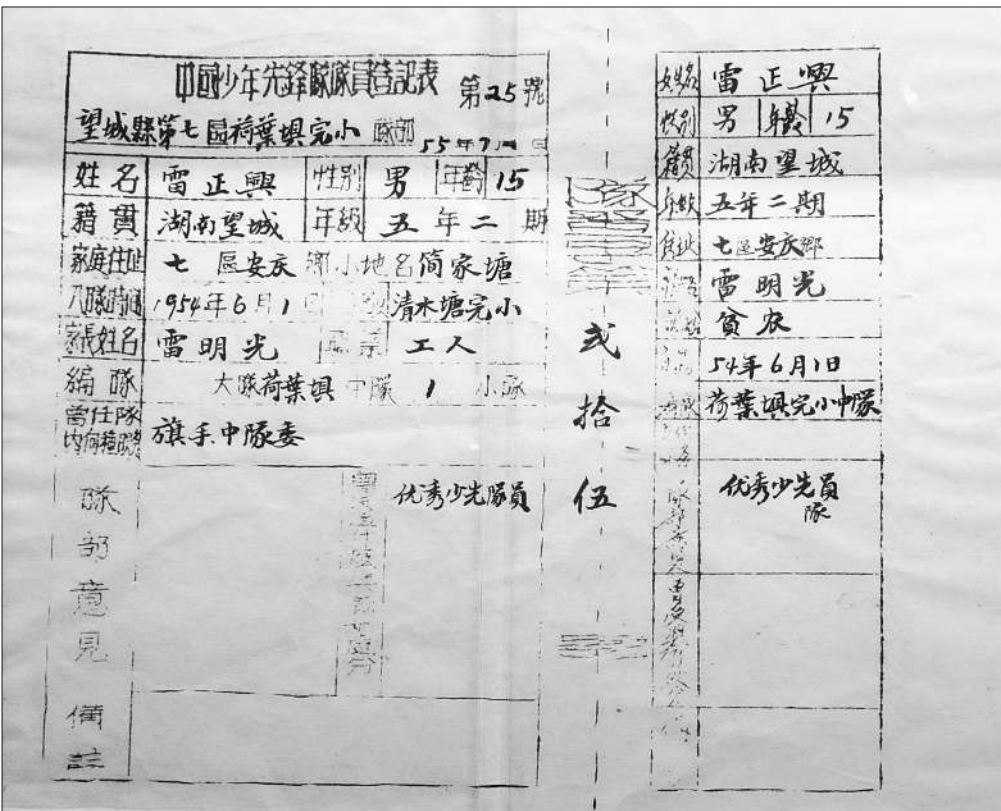 中國少年先鋒隊隊員登記表 第25號
望城縣第七區荷葉壩完小 隊部 55年7月 日
姓名 雷正興 性別 男 年齡 15
籍貫 湖南望城 年級 五年二期
家庭住址 七區安庆鄉小地名简家塘
入隊時間 1954年6月1日 清水塘完小
家長姓名 雷明光 工人
編隊 大隊荷葉壩中隊 1 小隊
曾任隊內何種職務 旗手中隊委
隊部意見
优秀少先隊員
備註
弍拾伍
姓名 雷正興
性別 男 年齡 15
籍貫 湖南望城
年級 五年二期
住址 七區安庆鄉
雷明光
貧农
54年6月1日
荷葉壩完小中隊
优秀少先員
隊